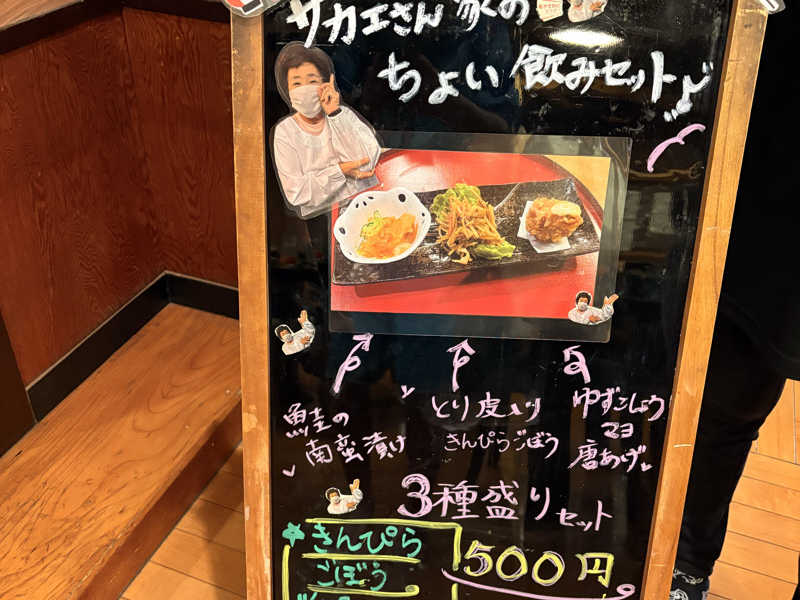 サカエさん家の
ちょい飲みセット♪
鮭の
南蛮漬け
とり皮入り
きんぴらごぼう
ゆずこしょう
マヨ
唐あげ
3種盛りセット
きんぴら
ごぼう
500円